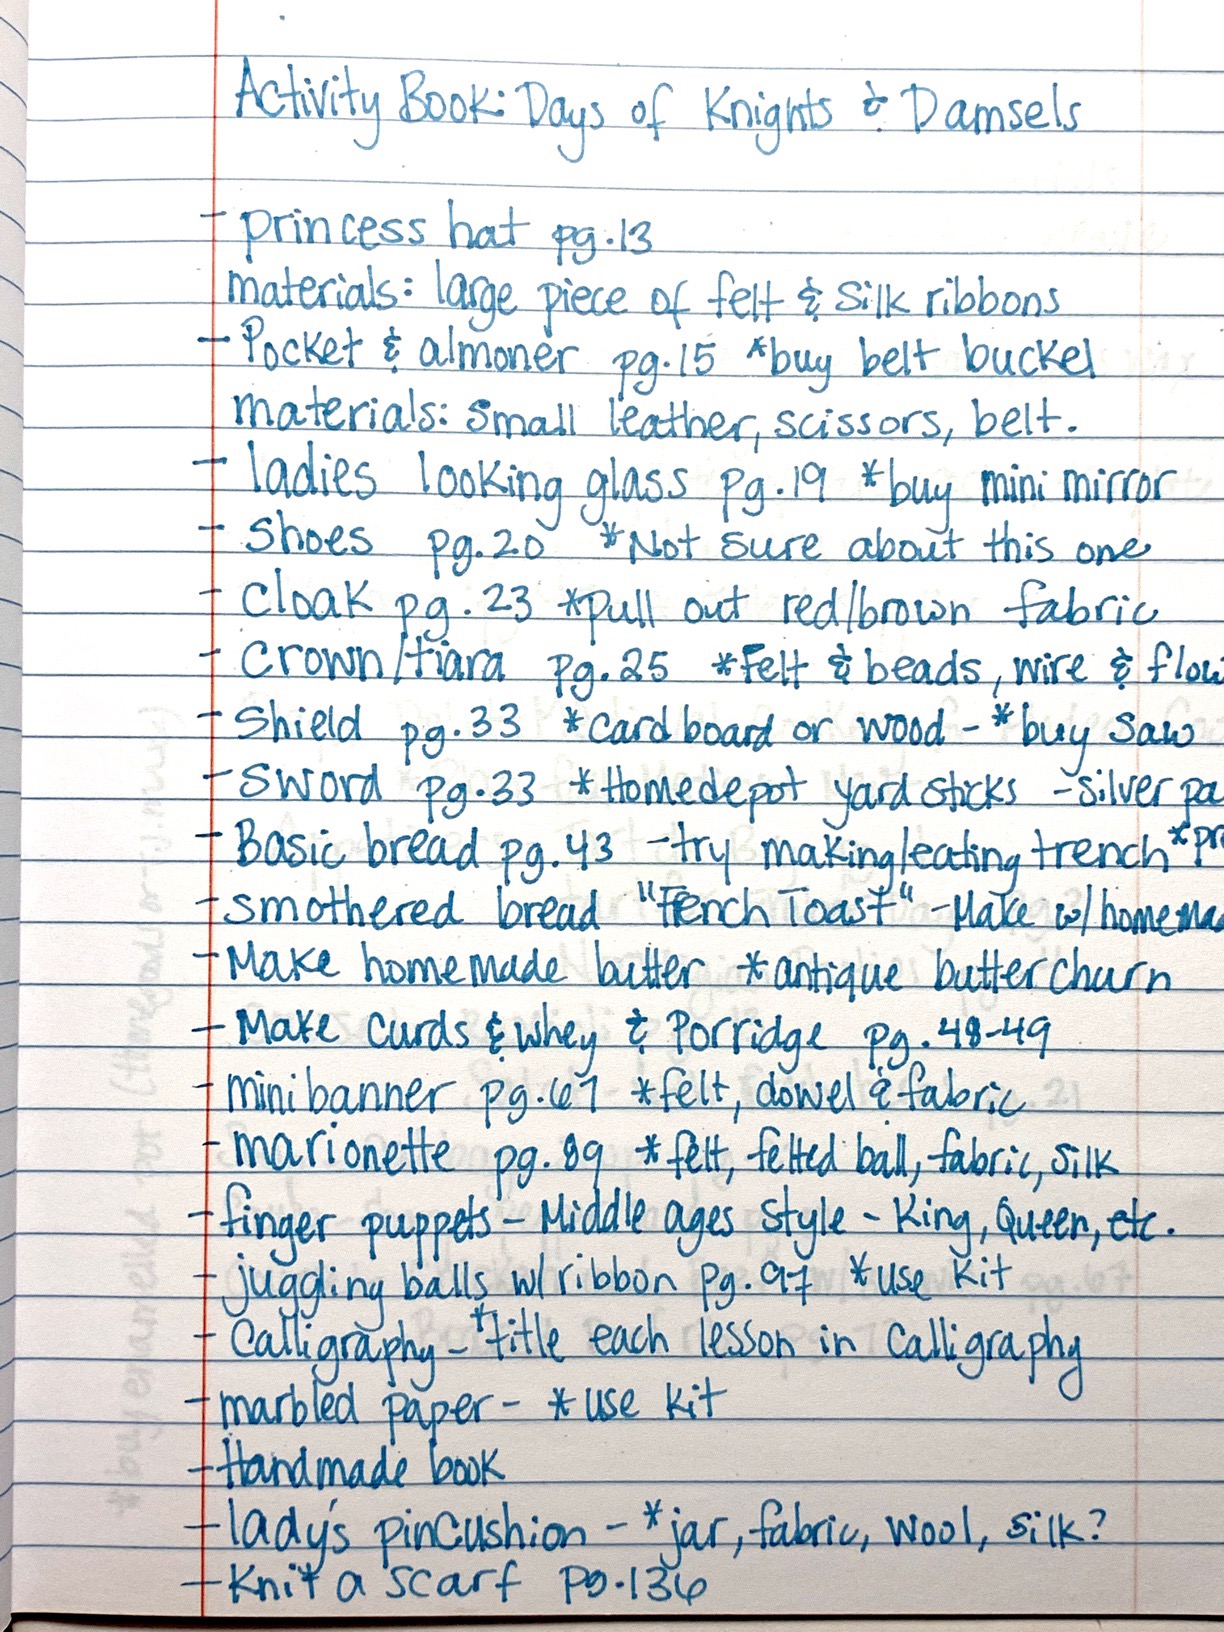 Activity Book: Days of Knights & Damsels
- princess hat pg.13
materials: large piece of felt & silk ribbons
- Pocket & almoner pg.15 *buy belt buckel
materials: small leather, scissors, belt.
- ladies looking glass pg.19 *buy mini mirror
- shoes pg.20 *Not sure about this one
- cloak pg.23 *pull out red/brown fabric
- Crown/tiara pg.25 *Felt & beads, wire &
- Shield pg.33 *cardboard or wood - *buy saw
- Sword pg.33 *Homedepot yard sticks - silver
- Basic bread pg.43 - try making/eating trench
- smothered bread "French Toast" - Make w/
- Make homemade butter *antique butter churn
- Make curds & whey & Porridge pg.48-49
- mini banner pg.67 *felt, dowel & fabric
- marionette pg.89 *felt, felted ball, fabric, silk
- finger puppets - Middle ages style - King, Queen, etc.
- juggling balls w/ribbon pg.97 *use kit
- Calligraphy - *title each lesson in calligraphy
- marbled paper - *use kit
- Handmade book
- lady's pincushion - *jar, fabric, wool, silk?
- Knit a scarf pg.136